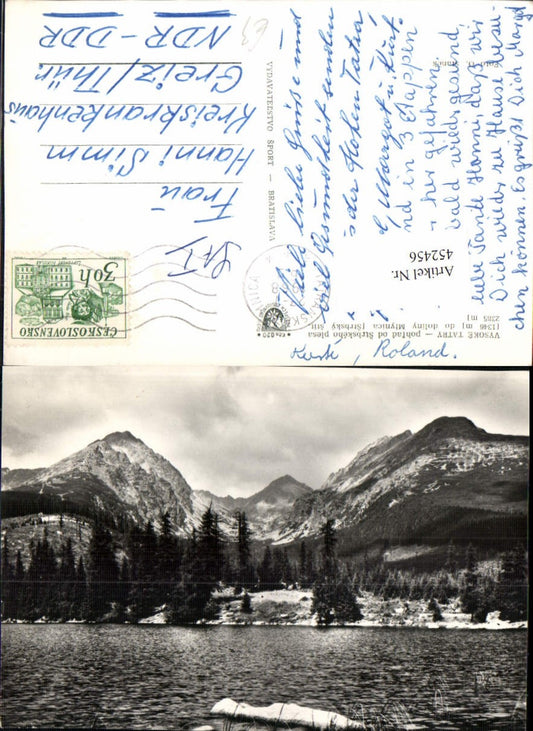 Viele liebe Grüße und
viel Gesundheit senden
aus der Hohen Tatra
Margot u. Kurt.
sind in 3 Etappen
hergefahren.
bald wieder gesund,
liebe Tante Hanni, daß wir
Dich wieder zu Hause besu-
chen können. Es grüßt Dich Margot
Kurt, Roland.
VYSOKÉ TATRY — pohľad od Štrbského plesa
[1346 m] do doliny Mlynica [Štrbský štít
2385 m]
Artikel Nr.
452456
VYDAVATEĽSTVO ŠPORT — BRATISLAVA
ČESKOSLOVENSKO
30h
Frau
Hanni Simm
Kreiskrankenhaus
Greiz/Thür.
NDR-DDR